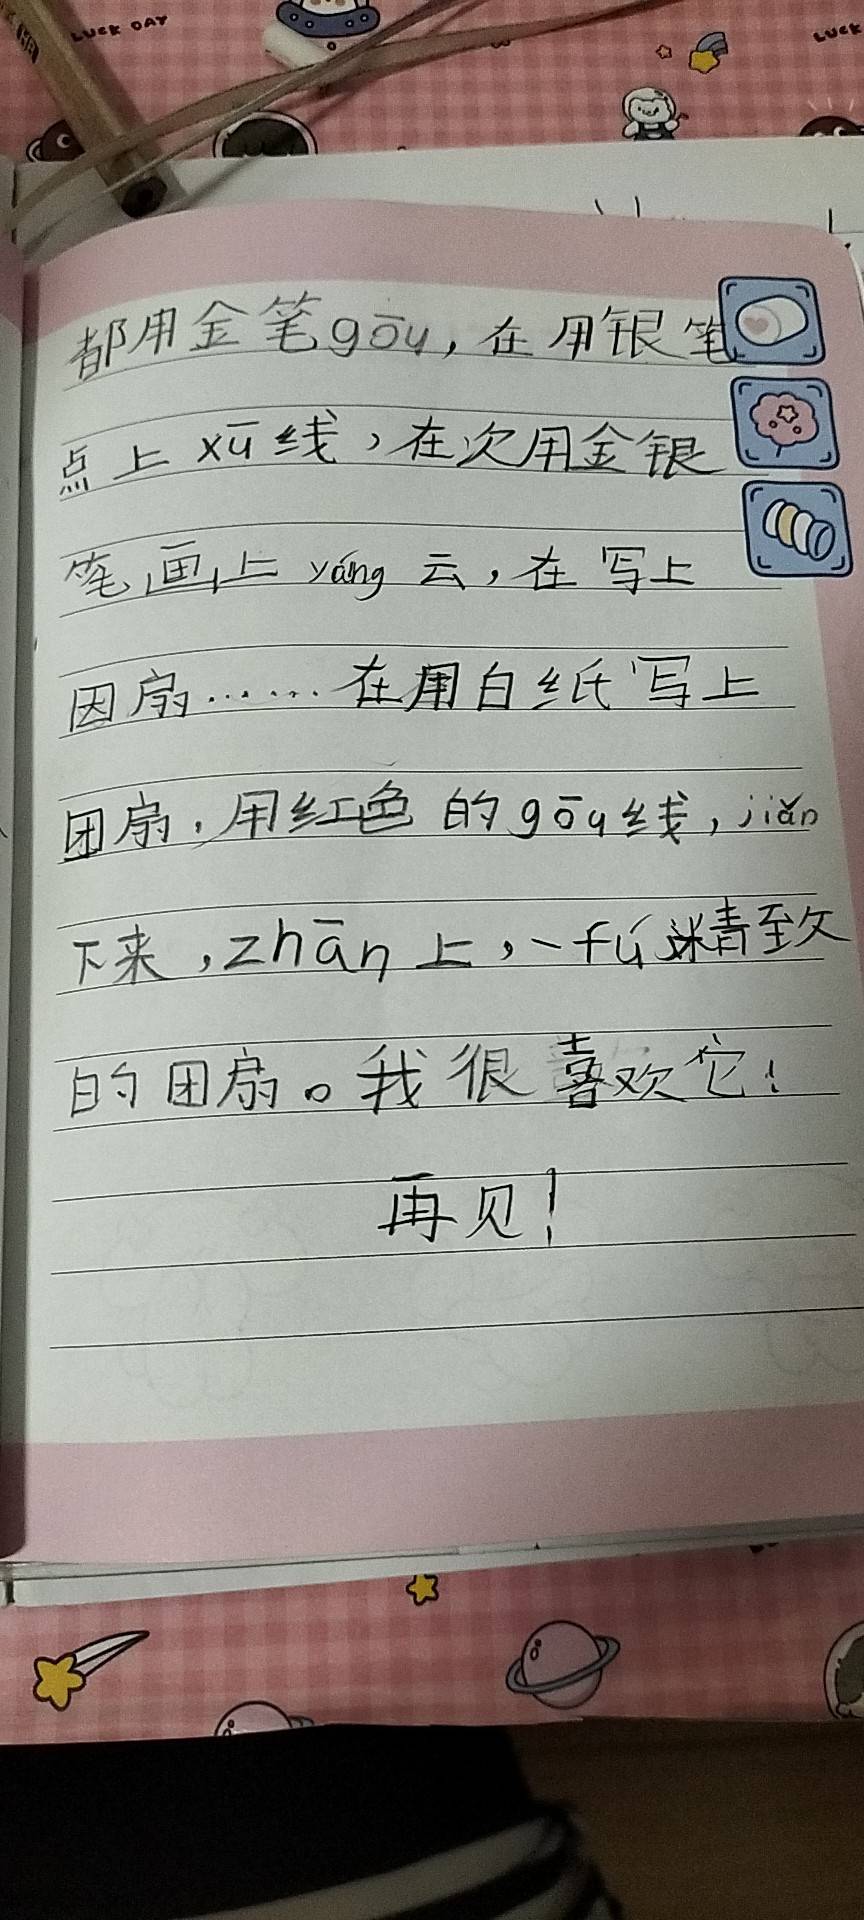 LUCK DAY
LUCK
都用金笔gōu，在用银笔
点上xū线，在次用金银
笔画上yáng云，在写上
因扇……在用白纸写上
团扇，用红色的gōu线，jiǎn
下来，zhān上，一fú精致
的团扇。我很喜欢它！
再见！